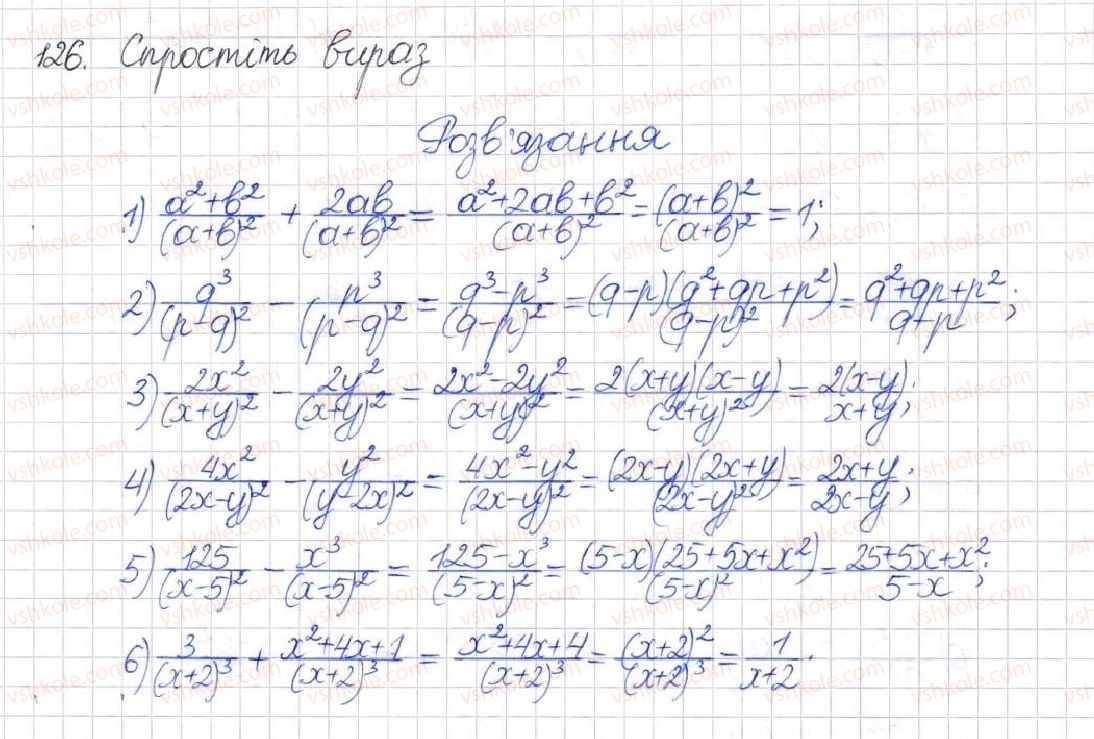 126. Спростіть вираз
Розв'язання
1) \frac{a^2+b^2}{(a+b)^2} + \frac{2ab}{(a+b)^2} = \frac{a^2+2ab+b^2}{(a+b)^2} = \frac{(a+b)^2}{(a+b)^2} = 1;
2) \frac{q^3}{(p-q)^2} - \frac{p^3}{(p-q)^2} = \frac{q^3-p^3}{(q-p)^2} = \frac{(q-p)(q^2+qp+p^2)}{(q-p)^2} = \frac{q^2+qp+p^2}{q-p};
3) \frac{2x^2}{(x+y)^2} - \frac{2y^2}{(x+y)^2} = \frac{2x^2-2y^2}{(x+y)^2} = \frac{2(x+y)(x-y)}{(x+y)^2} = \frac{2(x-y)}{x+y};
4) \frac{4x^2}{(2x-y)^2} - \frac{y^2}{(y-2x)^2} = \frac{4x^2-y^2}{(2x-y)^2} = \frac{(2x-y)(2x+y)}{(2x-y)^2} = \frac{2x+y}{2x-y};
5) \frac{125}{(x-5)^2} - \frac{x^3}{(x-5)^2} = \frac{125-x^3}{(5-x)^2} = \frac{(5-x)(25+5x+x^2)}{(5-x)^2} = \frac{25+5x+x^2}{5-x};
6) \frac{3}{(x+2)^3} + \frac{x^2+4x+1}{(x+2)^3} = \frac{x^2+4x+4}{(x+2)^3} = \frac{(x+2)^2}{(x+2)^3} = \frac{1}{x+2}.